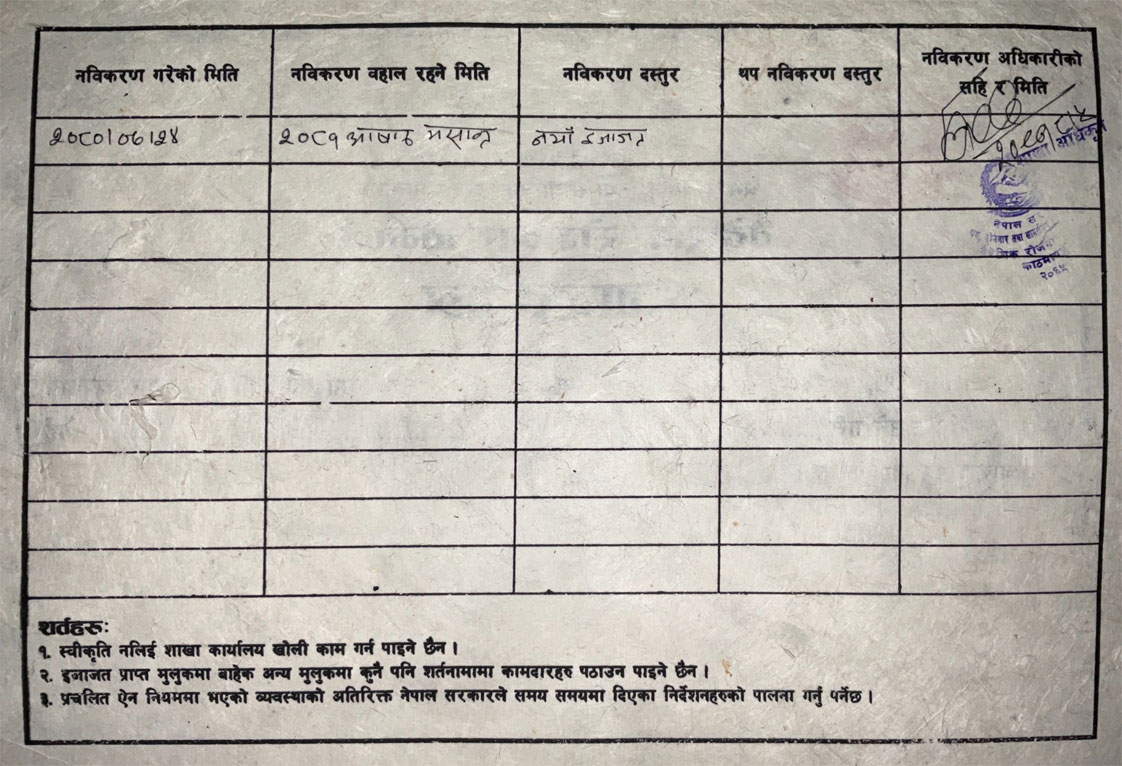 नविकरण गरेको मिति
नविकरण वहाल रहने मिति
नविकरण दस्तुर
थप नविकरण दस्तुर
नविकरण अधिकारीको
सहि र मिति
२०८०।०६।२४
२०८१ आषाढ मसान्त
नयाँ ईजाजत
शाखा अधिकृत
नेपाल स
काठमा
शर्तहरुः
१. स्वीकृति नलिई शाखा कार्यालय खोली काम गर्न पाइने छैन ।
२. इजाजत प्राप्त मुलुकमा बाहेक अन्य मुलुकमा कुनै पनि शर्तनामामा कामदारहरु पठाउन पाइने छैन ।
३. प्रचलित ऐन नियममा भएको व्यवस्थाको अतिरिक्त नेपाल सरकारले समय समयमा दिएका निर्देशनहरुको पालना गर्नु पर्नेछ ।